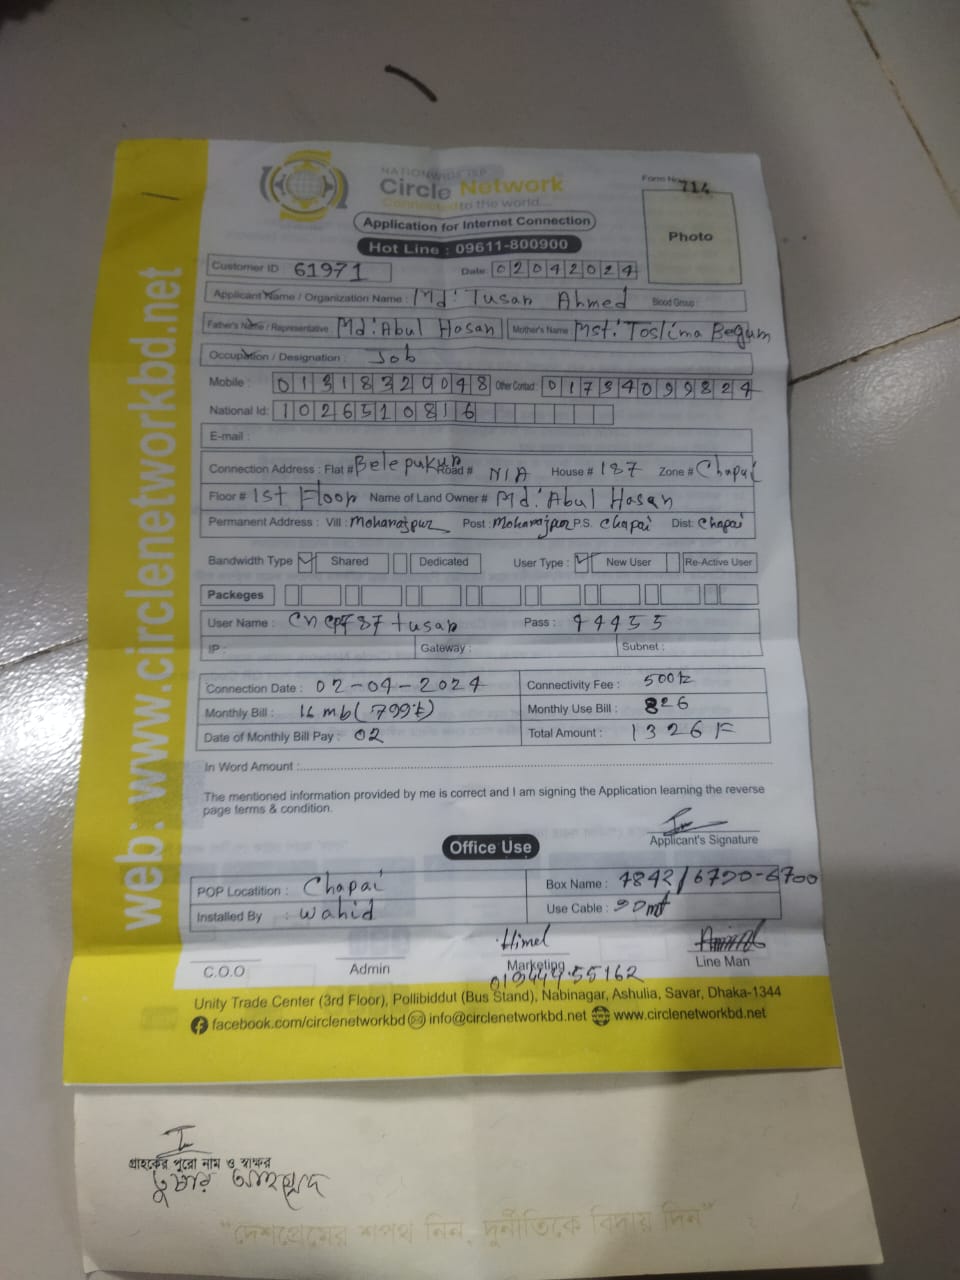 NATIONWIDE ISP
Circle Network
Connected to the world...
Form No. 714
Application for Internet Connection
Hot Line : 09611-800900
Photo
Customer ID 61971 Date: 02042024
Applicant Name / Organization Name : Md. Tusar Ahmed Blood Group :
Father's Name / Representative Md. Abul Hasan Mother's Name Mst. Toslima Begum
Occupation / Designation : Job
Mobile : 01318320048 Other Contact 01734099824
National Id: 1026510816
E-mail :
Connection Address : Flat # Belepukur Road # N/A House # 187 Zone # Chapai
Floor # 1st Floor Name of Land Owner # Md. Abul Hasan
Permanent Address : Vill : Moharajpur Post : Moharajpur P.S. Chapai Dist: Chapai
Bandwidth Type Shared Dedicated User Type : New User Re-Active User
Packeges
User Name : tusar Pass : 44455
IP : Gateway : Subnet :
Connection Date : 02-04-2024 Connectivity Fee : 500
Monthly Bill : 16 mb (799) Monthly Use Bill : 826
Date of Monthly Bill Pay : 02 Total Amount : 1326
In Word Amount :
The mentioned information provided by me is correct and I am signing the Application learning the reverse
page terms & condition.
Applicant's Signature
Office Use
POP Locatition : Chapai Box Name :
Installed By : Wahid Use Cable :
Himel
C.O.O Admin Marketing Line Man
Unity Trade Center (3rd Floor), Pollibiddut (Bus Stand), Nabinagar, Ashulia, Savar, Dhaka-1344
facebook.com/circlenetworkbd info@circlenetworkbd.net www.circlenetworkbd.net
web: www.circlenetworkbd.net
গ্রাহকের পুরো নাম ও স্বাক্ষর
তুষার আহম্মেদ
"দেশপ্রেমের শপথ নিন, দুর্নীতিকে বিদায় দিন"